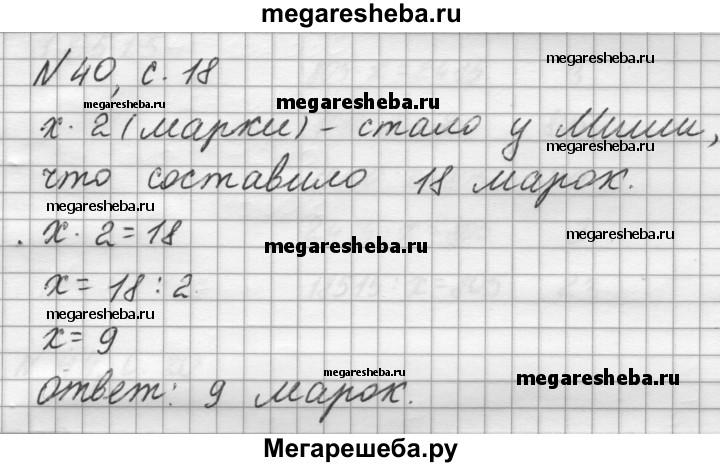 megaresheba.ru
N 40, с. 18
megaresheba.ru
megaresheba.ru
megaresheba.ru
х · 2 (марки) - стало у Миши,
megaresheba.ru
что составило 18 марок.
megaresheba.ru
х · 2 = 18
megaresheba.ru
megaresheba.ru
х = 18 : 2
megaresheba.ru
х = 9
megaresheba.ru
megaresheba.ru
ответ: 9 марок.
Мегарешеба.ру